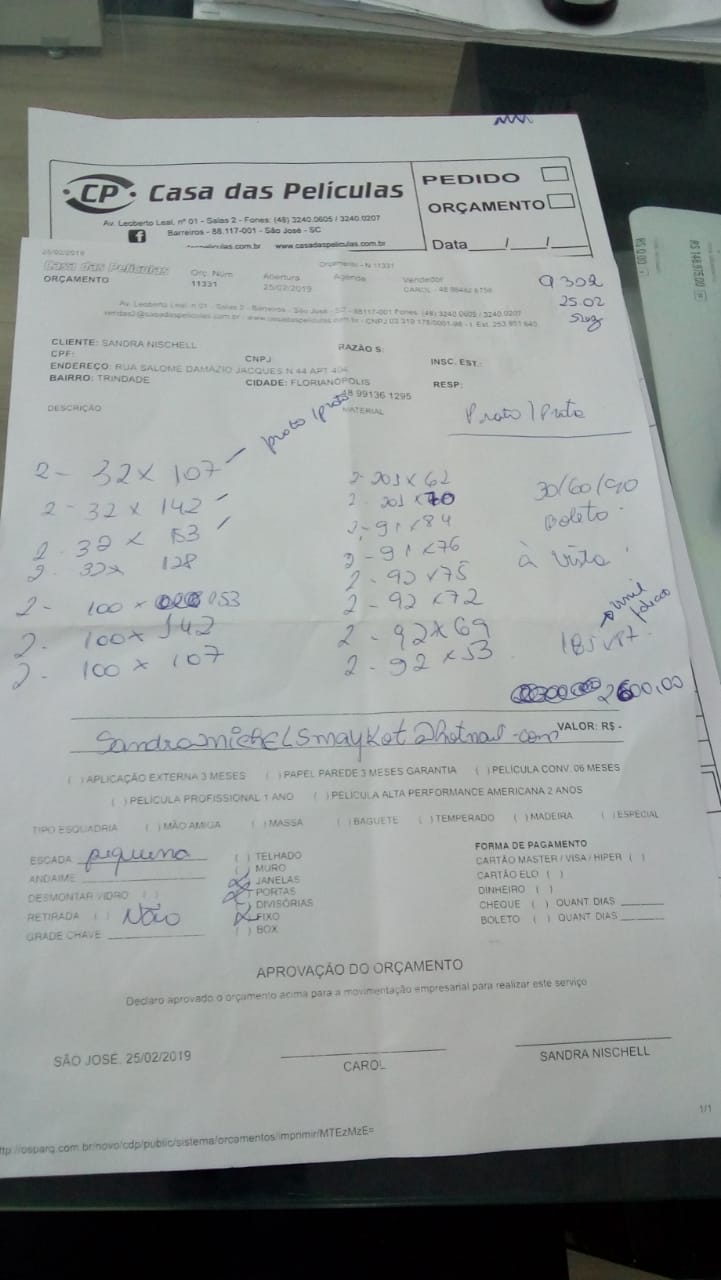 CP Casa das Películas
PEDIDO
ORÇAMENTO
Av. Leoberto Leal, nº 01 - Salas 2 - Fones: (48) 3240.0605 / 3240.0207
Barreiros - 88.117-001 - São José - SC
www.casadaspeliculas.com.br
Data / /
25/02/2019
Orçamento - N 11331
Casa das Películas
ORÇAMENTO
Orç. Num
11331
Abertura
25/02/2019
Agenda
Vendedor
9302
25.02
CLIENTE: SANDRA NISCHELL
RAZÃO S:
CPF:
CNPJ:
INSC. EST.:
ENDEREÇO: RUA SALOME DAMAZIO JACQUES N 44 APT 404
BAIRRO: TRINDADE
CIDADE: FLORIANÓPOLIS
RESP:
48 99136 1295
DESCRIÇÃO
MATERIAL
Prata / Prata
2 - 32 x 107
2 - 32 x 142
2 - 32 x 153
2 - 32 x 128
2 - 100 x 153
2 - 100 x 142
2 - 100 x 107
2 - 201 x 62
2 - 201 x 70
2 - 91 x 84
2 - 91 x 76
2 - 92 x 75
2 - 92 x 72
2 - 92 x 69
2 - 92 x 53
30/60/90
boleto
à vista
2600,00
VALOR: R$ -
( ) APLICAÇÃO EXTERNA 3 MESES ( ) PAPEL PAREDE 3 MESES GARANTIA ( ) PELÍCULA CONV. 06 MESES
( ) PELÍCULA PROFISSIONAL 1 ANO ( ) PELÍCULA ALTA PERFORMANCE AMERICANA 2 ANOS
TIPO ESQUADRIA ( ) MÃO AMIGA ( ) MASSA ( ) BAGUETE ( ) TEMPERADO ( ) MADEIRA ( ) ESPECIAL
ESCADA pequena
ANDAIME
DESMONTAR VIDRO ( )
RETIRADA ( ) Não
GRADE CHAVE
( ) TELHADO
( ) MURO
(x) JANELAS
(x) PORTAS
( ) DIVISÓRIAS
(x) FIXO
( ) BOX
FORMA DE PAGAMENTO
CARTÃO MASTER / VISA / HIPER ( )
CARTÃO ELO ( )
DINHEIRO ( )
CHEQUE ( ) QUANT DIAS
BOLETO ( ) QUANT DIAS
APROVAÇÃO DO ORÇAMENTO
Declaro aprovado o orçamento acima para a movimentação empresarial para realizar este serviço
SÃO JOSÉ, 25/02/2019
CAROL
SANDRA NISCHELL
1/1
ttp://osparq.com.br/novo/cdp/public/sistema/orcamentos/imprimir/MTEzMzE=